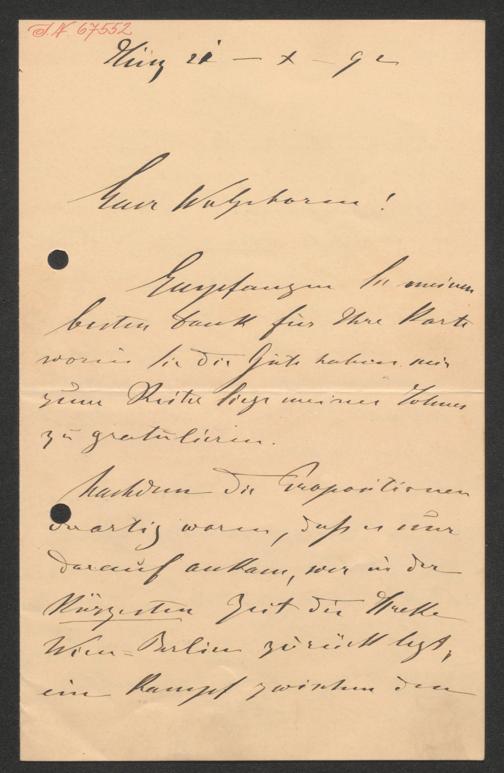 I.N 67552
21 – X – 92
Euer Wohlgeboren!
Empfangen Sie meinen
besten Dank für Ihre Karte
worin Sie die Güte haben mir
zum Reiter Siege meines Sohnes
zu gratulieren.
Nachdem die Propositionen
derartig waren, daß es nur
darauf ankam, wer in der
kürzesten Zeit die Strecke
Wien-Berlin zurück legt,
ein Kampf zwischen den